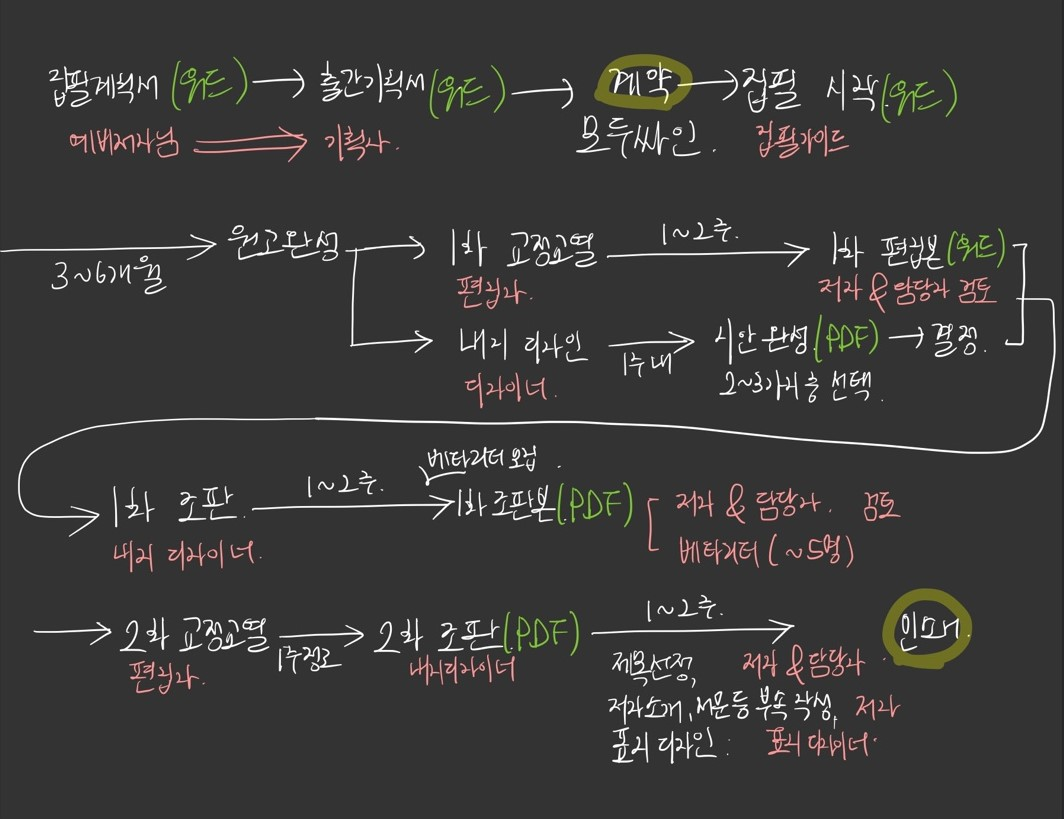 집필계획서(워드) → 출간기획서(워드) → 계약 → 집필 시작(워드)
예비저자님 ⇒ 기획사. 모두싸인. 집필가이드
3~6개월 → 원고완성 → 1차 교정교열 1~2주. → 1차 편집본(워드)
편집자. 저자 & 담당자 검토
→ 내지 디자인 1주 내 → 시안 완성.(PDF) → 결정.
디자이너. 2~3가지 중 선택.
베타리더 모집.
→ 1차 조판. 1~2주. → 1차 조판본(PDF) 저자 & 담당자. 검토
내지 디자이너. 베타리더(~5명)
→ 2차 교정교열 1주정도 → 2차 조판(PDF) 1~2주. → 인쇄.
편집자. 내지디자이너
제목선정, 저자 & 담당자.
저자소개, 서문 등 부속 작성, 저자
표지 디자인. 표지 디자이너.